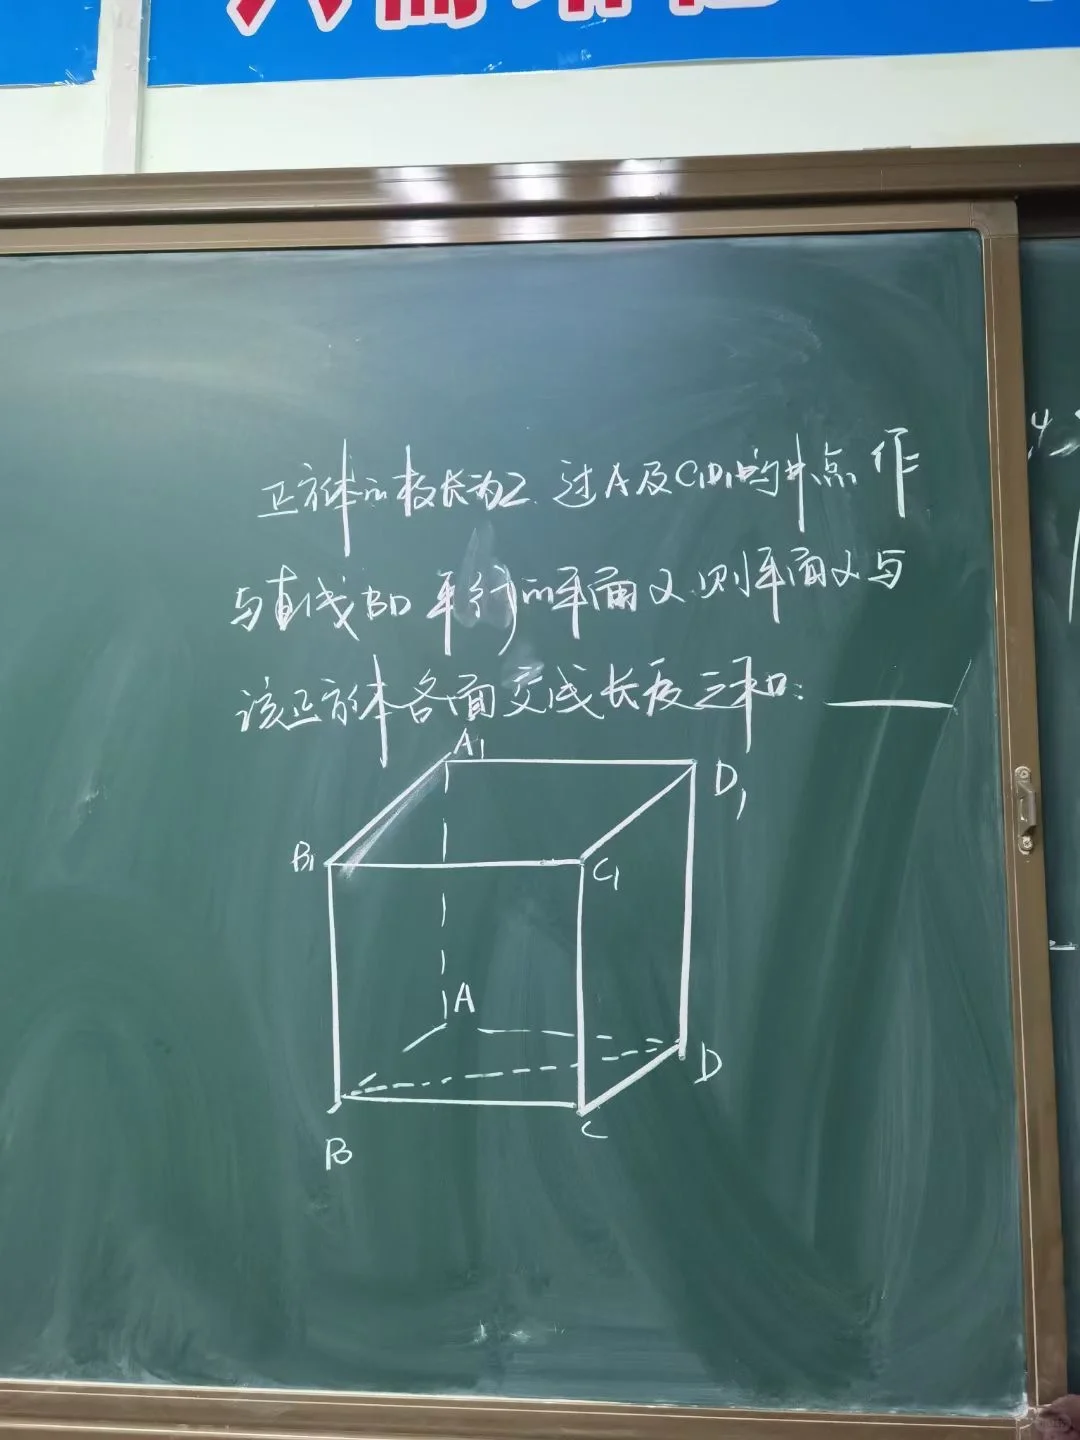 正方体的棱长为2.过A及C₁D₁的中点作
与直线BD平行的平面α,则平面α与
该正方体各面交线长度之和:
A₁
D₁
B₁
C₁
A
D
B
C
4